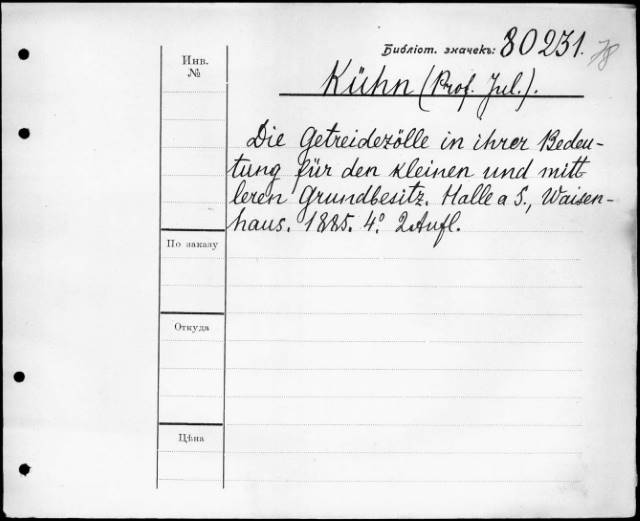 Библіот. значекъ: 80231. 78
Инв. №
Kühn (Prof. Jul.).
Die Getreidezölle in ihrer Bedeu-
tung für den kleinen und mitt-
leren Grundbesitz. Halle a S., Waisen-
haus. 1885. 4.° 2 Aufl.
По заказу
Откуда
Цѣна